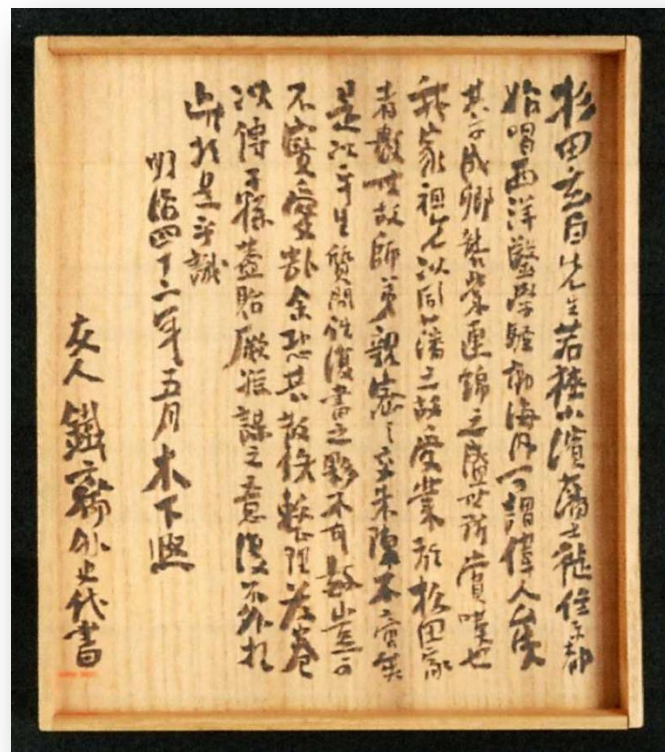 杉田玄白先生若狭小濱藩士籍住京都
始唱西洋醫學驗于海内可謂偉人矣
其子成卿紫業連錦之盛世所賞嘆也
我家祖先以同藩之故受業於杉田家
者數世故師弟親密之交朱陳不啻矣
是以平生質問往復書之夥不可
不寶愛哉余恐其散佚整理為卷
以傳子孫蓋貽厥孫謀之意復不外於
此於是乎識
明治四十二年五月木下熈
友人鐵齋外史代書